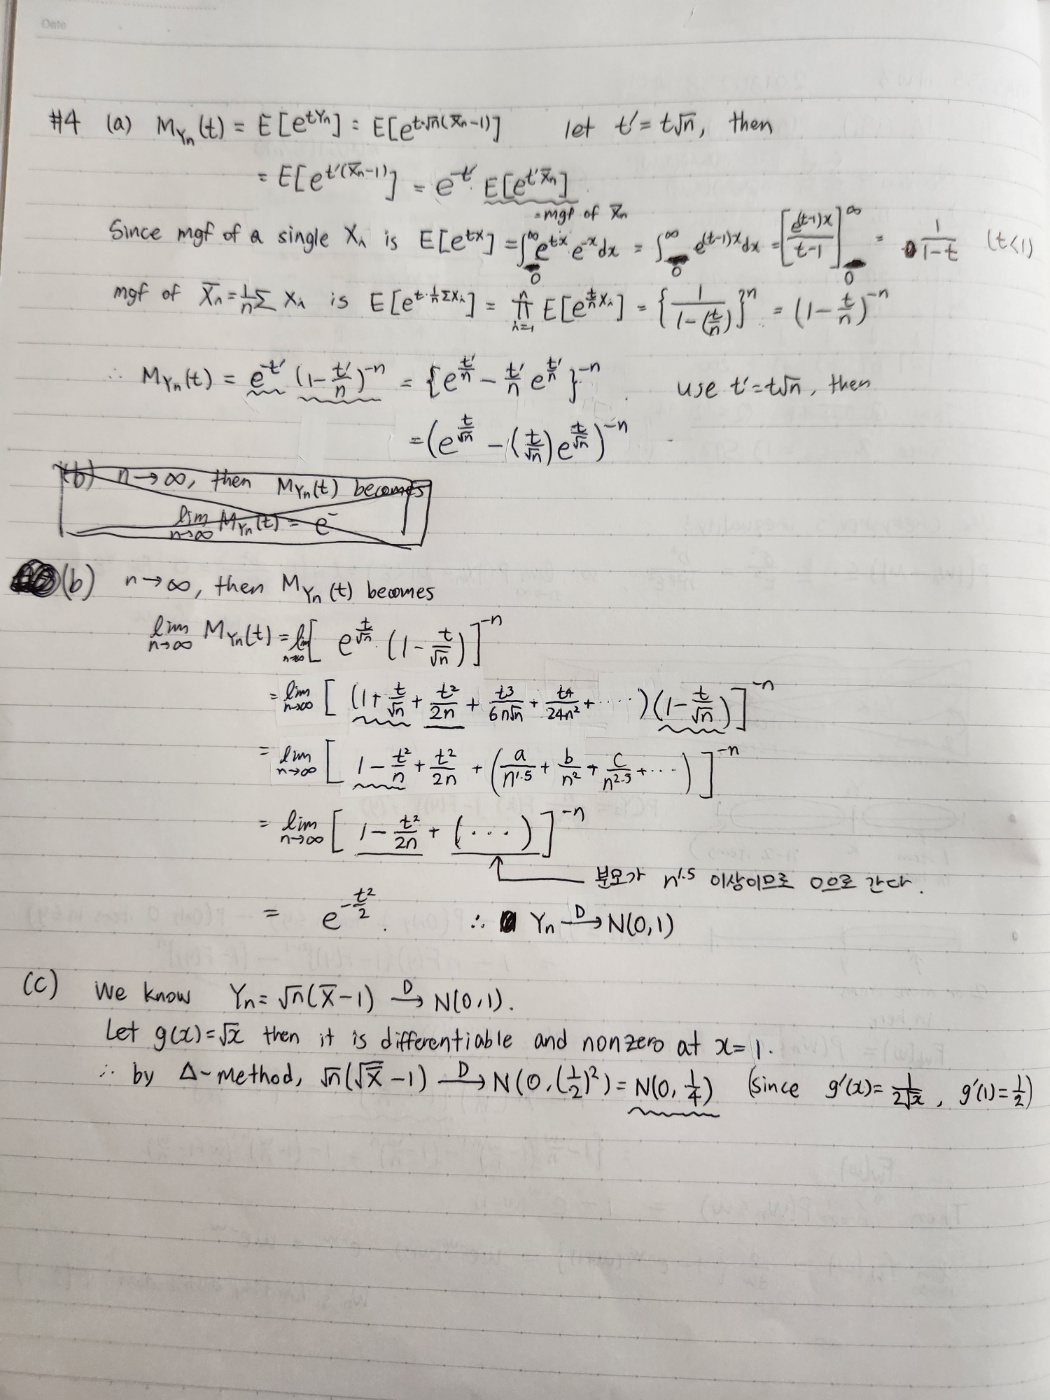 Date
#4 (a) M_{Y_n}(t) = E[e^{tY_n}] = E[e^{t√n(X̄_n-1)}] let t' = t√n, then
= E[e^{t'(X̄_n-1)}] = e^{-t'} E[e^{t'X̄_n}]
= mgf of X̄_n
Since mgf of a single X_i is E[e^{tX}] = ∫_0^∞ e^{tx} e^{-x} dx = ∫_0^∞ e^{(t-1)x} dx = [e^{(t-1)x}/(t-1)]_0^∞ = 1/(1-t) (t<1)
mgf of X̄_n = 1/n Σ X_i is E[e^{t·1/n ΣX_i}] = ∏_{i=1}^n E[e^{t/n X_i}] = {1/(1-(t/n))}^n = (1-t/n)^{-n}
∴ M_{Y_n}(t) = e^{-t'} (1-t'/n)^{-n} = {e^{t'/n} - t'/n e^{t'/n}}^{-n} use t' = t√n, then
= (e^{t/√n} - (t/√n) e^{t/√n})^{-n}
(b) n→∞, then M_{Y_n}(t) becomes
lim_{n→∞} M_{Y_n}(t) = e^-
(b) n→∞, then M_{Y_n}(t) becomes
lim_{n→∞} M_{Y_n}(t) = lim_{n→∞} [e^{t/√n} (1-t/√n)]^{-n}
= lim_{n→∞} [(1 + t/√n + t²/2n + t3/6n√n + t4/24n² + ····)(1-t/√n)]^{-n}
= lim_{n→∞} [1 - t²/n + t²/2n + (a/n^{1.5} + b/n² + c/n^{2.5} + ···)]^{-n}
= lim_{n→∞} [1 - t²/2n + (···)]^{-n}
분모가 n^{1.5} 이상이므로 0으로 간다.
= e^{-t²/2}. ∴ Y_n →^D N(0,1)
(C) We know Y_n = √n(X̄-1) →^D N(0,1).
Let g(x)=√x then it is differentiable and nonzero at x=1.
∴ by Δ-method, √n(√X̄ -1) →^D N(0,(1/2)²) = N(0,1/4) (since g'(x)=1/(2√x), g'(1)=1/2)